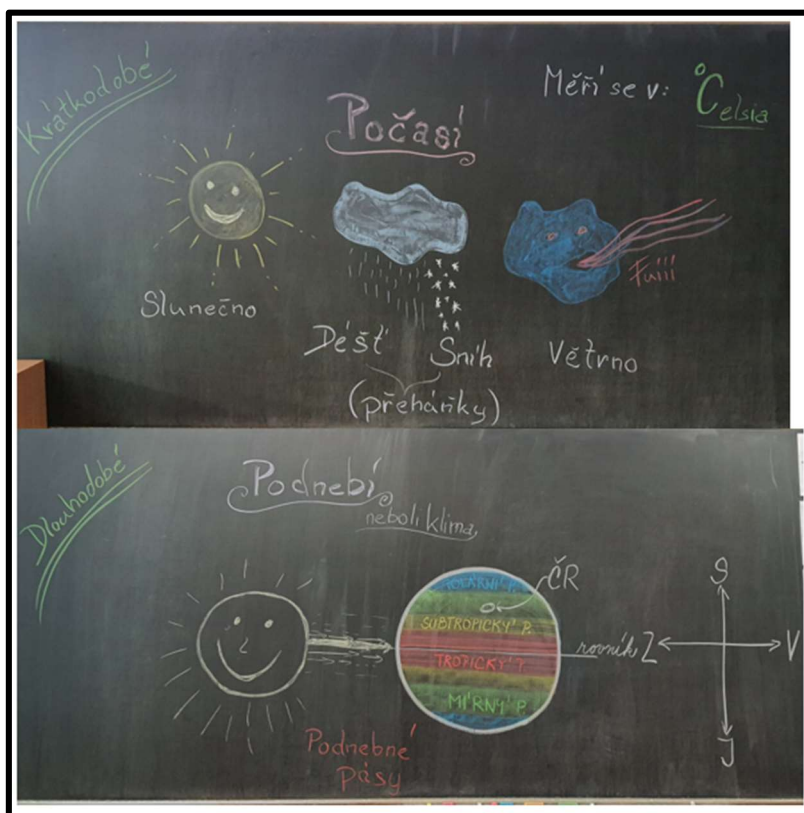 Krátkodobé
Počasí
Měří se v: °Celsia
Fúííí
Slunečno
Déšť Sníh Větrno
(přeháňky)
Dlouhodobé
Podnebí
neboli klima
POLÁRNÍ P.
ČR
SUBTROPICKÝ P.
TROPICKÝ P.
MÍRNÝ P.
rovník
S
Z V
J
Podnebné
pásy